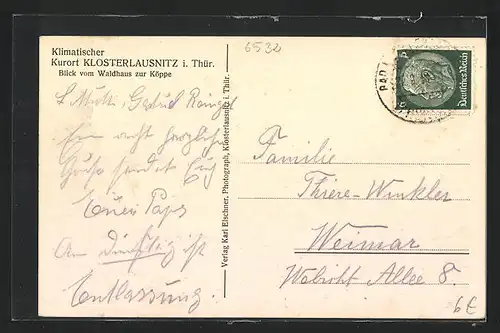 Klimatischer
Kurort KLOSTERLAUSNITZ i. Thür.
Blick vom Waldhaus zur Köppe
6532
L. Mutti,
Ein recht herzlicher
Gruß sendet Euch
Euer Papa
Am Dienstag ist
Entlassung.
Verlag Karl Elschner, Photograph, Klosterlausnitz i. Thür.
Deutsches Reich
BAD
Familie
Thiere-Winkler
Weimar
Allee 8.
6€